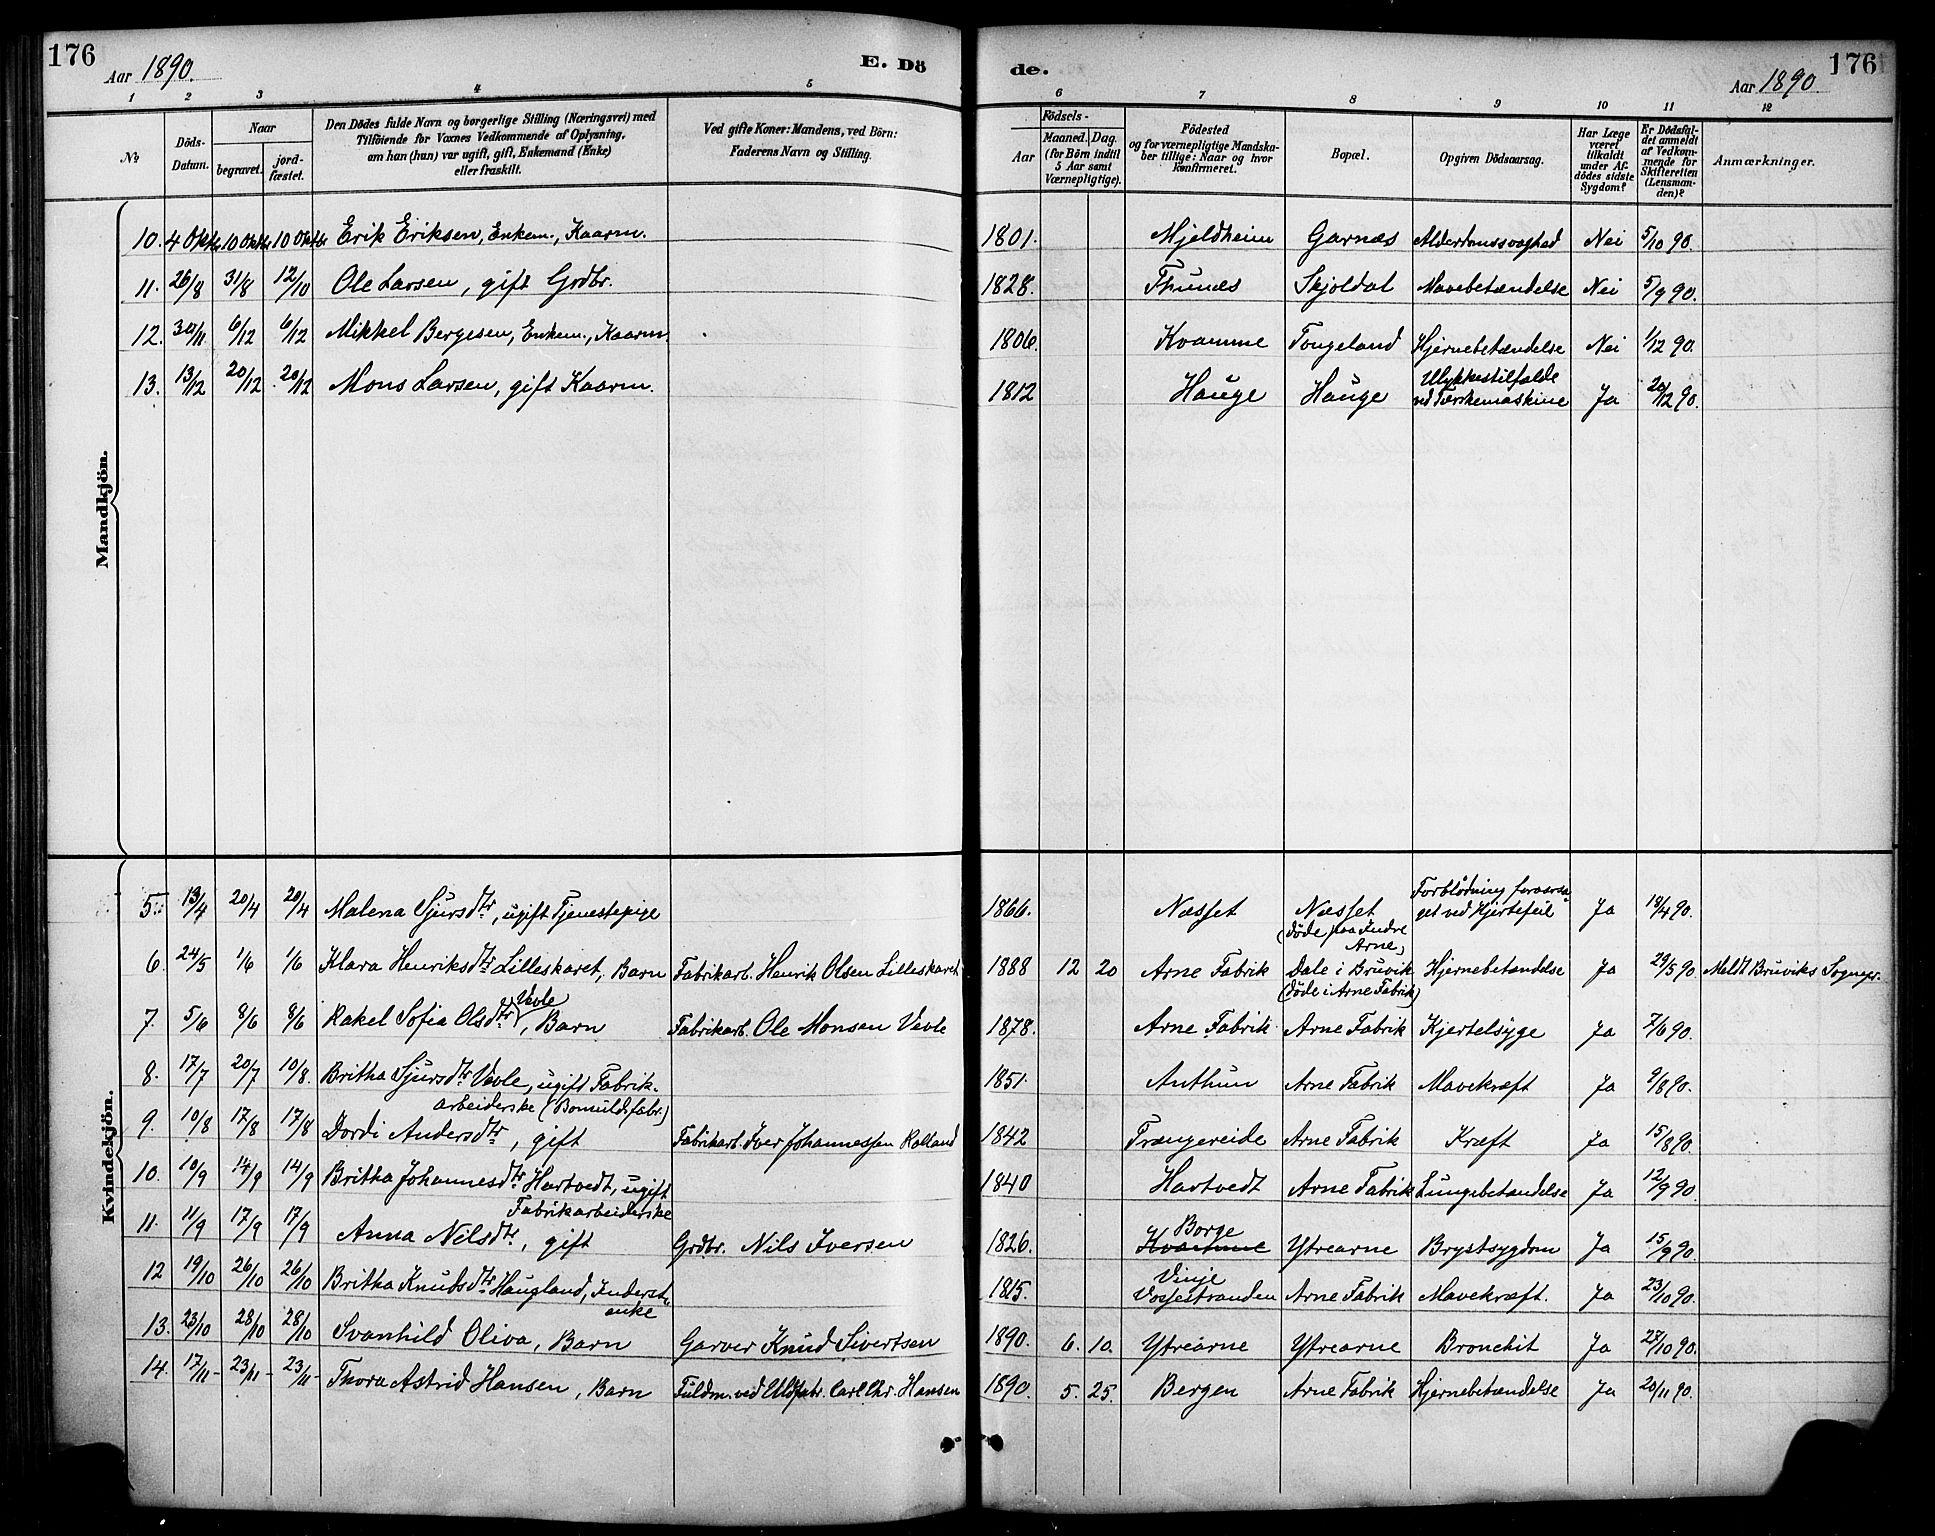 176
Aar 1890.
E. Dö
de.
Aar 1890
176
1 2 3 4 5 6 7 8 9 10 11 12
No
Döds-Datum.
Naar
begravet.
jord-fæstet.
Den Dödes fulde Navn og borgerlige Stilling (Næringsvei) med
Tilföiende for Voxnes Vedkommende af Oplysning,
om han (hun) var ugift, gift, Enkemand (Enke)
eller fraskilt.
Ved gifte Koner: Mandens, ved Börn:
Faderens Navn og Stilling.
Födsels-
Aar
Maaned. Dag.
(for Börn indtil
5 Aar samt
Værnepligtige).
Födested
og for værnepligtige Mandska-
ber tillige: Naar og hvor
konfirmeret.
Bopæl.
Opgiven Dödsaarsag.
Har Læge
været
tilkaldt
under Af-
dödes sidste
Sygdom?
Er Dödsfal-
det anmeldt
af Vedkom-
mende for
Skifteretten
(Lensman-
den)?
Anmærkninger.
Mandkjön.
10. 4 Oktbr 10 Oktbr 10 Oktbr Erik Eriksen, Enkem., Kaarm. 1801. Mjeldheim Garnæs Alderdomssvaghed Nei 5/10 90.
11. 26/8 31/8 12/10 Ole Larsen, gift Grdbr. 1828. Thunes Skjoldal Mavebetændelse Nei 5/9 90.
12. 30/11 6/12 6/12 Mikkel Bergesen, Enkem., Kaarm. 1806. Kvamme Tongeland Hjernebetændelse Nei 1/12 90.
13. 13/12 20/12 20/12 Mons Larsen, gift Kaarm. 1812 Hauge Hauge Ulykkestilfælde
ved Tærskemaskine Ja 20/12 90.
Kvindekjön.
5. 13/4 20/4 20/4 Malena Sjursdtr, ugift Tjenestepige 1866. Næsset Næsset
(döde paa Indre
Arne) Forblödning foraarsa-
get ved Hjertefeil Ja 18/4 90.
6. 24/5 1/6 1/6 Klara Henriksdtr Lilleskaret, Barn Fabrikarb. Henrik Olsen Lilleskaret 1888 12 20 Arne Fabrik Dale i Bruvik
(döde i Arne Fabrik) Hjernebetændelse Ja 29/5 90. Meldt Bruviks Sognepr.
7. 5/6 8/6 8/6 Rakel Sofia Olsdtr Vevle, Barn Fabrikarb. Ole Monsen Vevle 1878. Arne Fabrik Arne Fabrik Kjertelsyge Ja 7/6 90.
8. 17/7 20/7 10/8. Britha Sjursdtr Vevle, ugift Fabrik-
arbeiderske (Bomuldsfabr.) 1851. Anthun Arne Fabrik Mavekræft Ja 9/8 90.
9. 10/8 17/8 17/8 Dordi Andersdtr, gift Fabrikarb. Iver Johannessen Rolland 1842 Trængereide Arne Fabrik Kræft Ja 15/8 90.
10. 10/9 14/9 14/9 Britha Johannesdtr Hartvedt, ugift
Fabrikarbeiderske 1840 Hartvedt Arne Fabrik Lungebetændelse Ja 12/9 90.
11. 11/9 17/9 17/9 Anna Nilsdtr, gift Grdbr. Nils Iversen 1826. Borge
Kvamme Ytrearne Brystsygdom Ja 15/9 90.
12 19/10 26/10 26/10 Britha Knutsdtr Haugland, Inderst-
enke 1815. Vinje
Vossestranden Arne Fabrik Mavekræft. Ja 23/10 90.
13. 23/10 28/10 28/10 Svanhild Oliva, Barn Garver Knud Sivertsen 1890. 6. 10. Ytrearne Ytrearne Bronchit Ja 27/10 90.
14. 17/11 23/11 23/11 Thora Astrid Hansen, Barn Fuldm. ved Uldfabr. Carl Chr. Hansen 1890. 5. 25. Bergen Arne Fabrik Hjernebetændelse Ja 20/11 90.